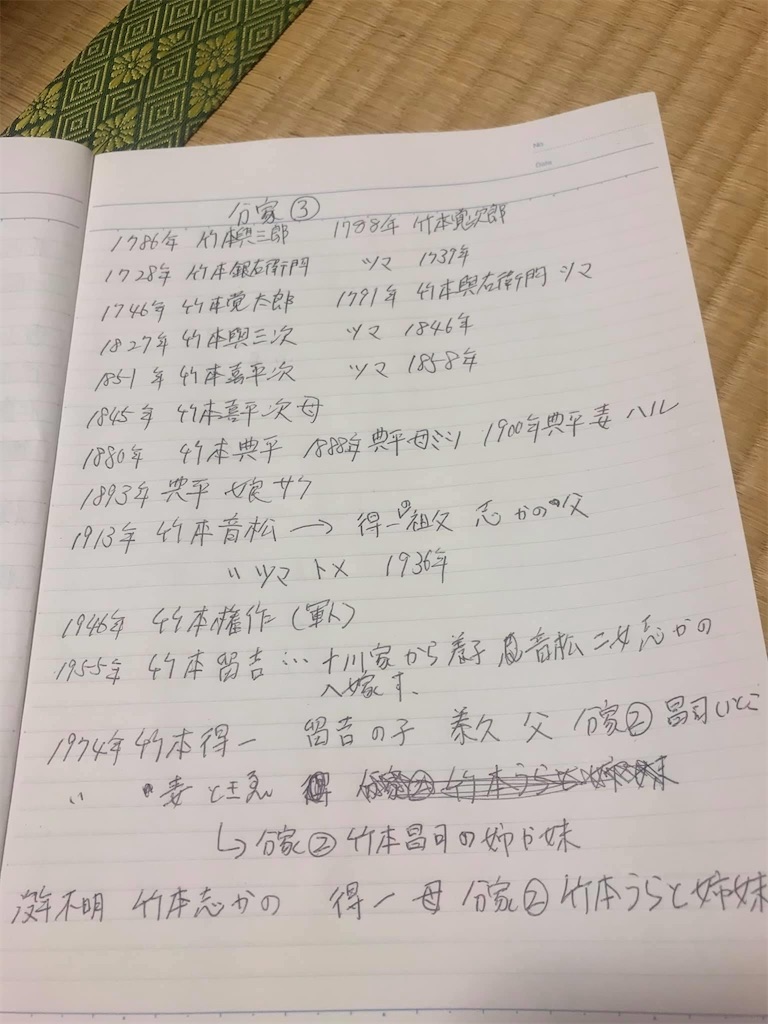 No.
Date
分家③
1786年 竹本與三郎 1788年 竹本寛次郎
1728年 竹本銀右衛門 ツマ 1737年
1746年 竹本覚太郎 1791年 竹本與右衛門 ツマ
1827年 竹本與三次 ツマ 1846年
1851年 竹本喜平次 ツマ 1858年
1845年 竹本喜平次母
1880年 竹本典平 1888年典平母ミン 1900年典平妻 ハル
1893年 典平 娘サク
1913年 竹本音松 → 得一の祖父 志かの父
〃 ツマ トメ 1936年
1946年 竹本権作(軍人)
1955年 竹本留吉 … 十川家から養子 音松二女志かの
へ嫁す、
1974年 竹本得一 留吉の子 兼久 父 分家② 昌司いとこ
〃 妻
↳分家② 竹本昌司の姉か妹
没年不明 竹本志かの 得一 母 分家② 竹本うらと姉妹